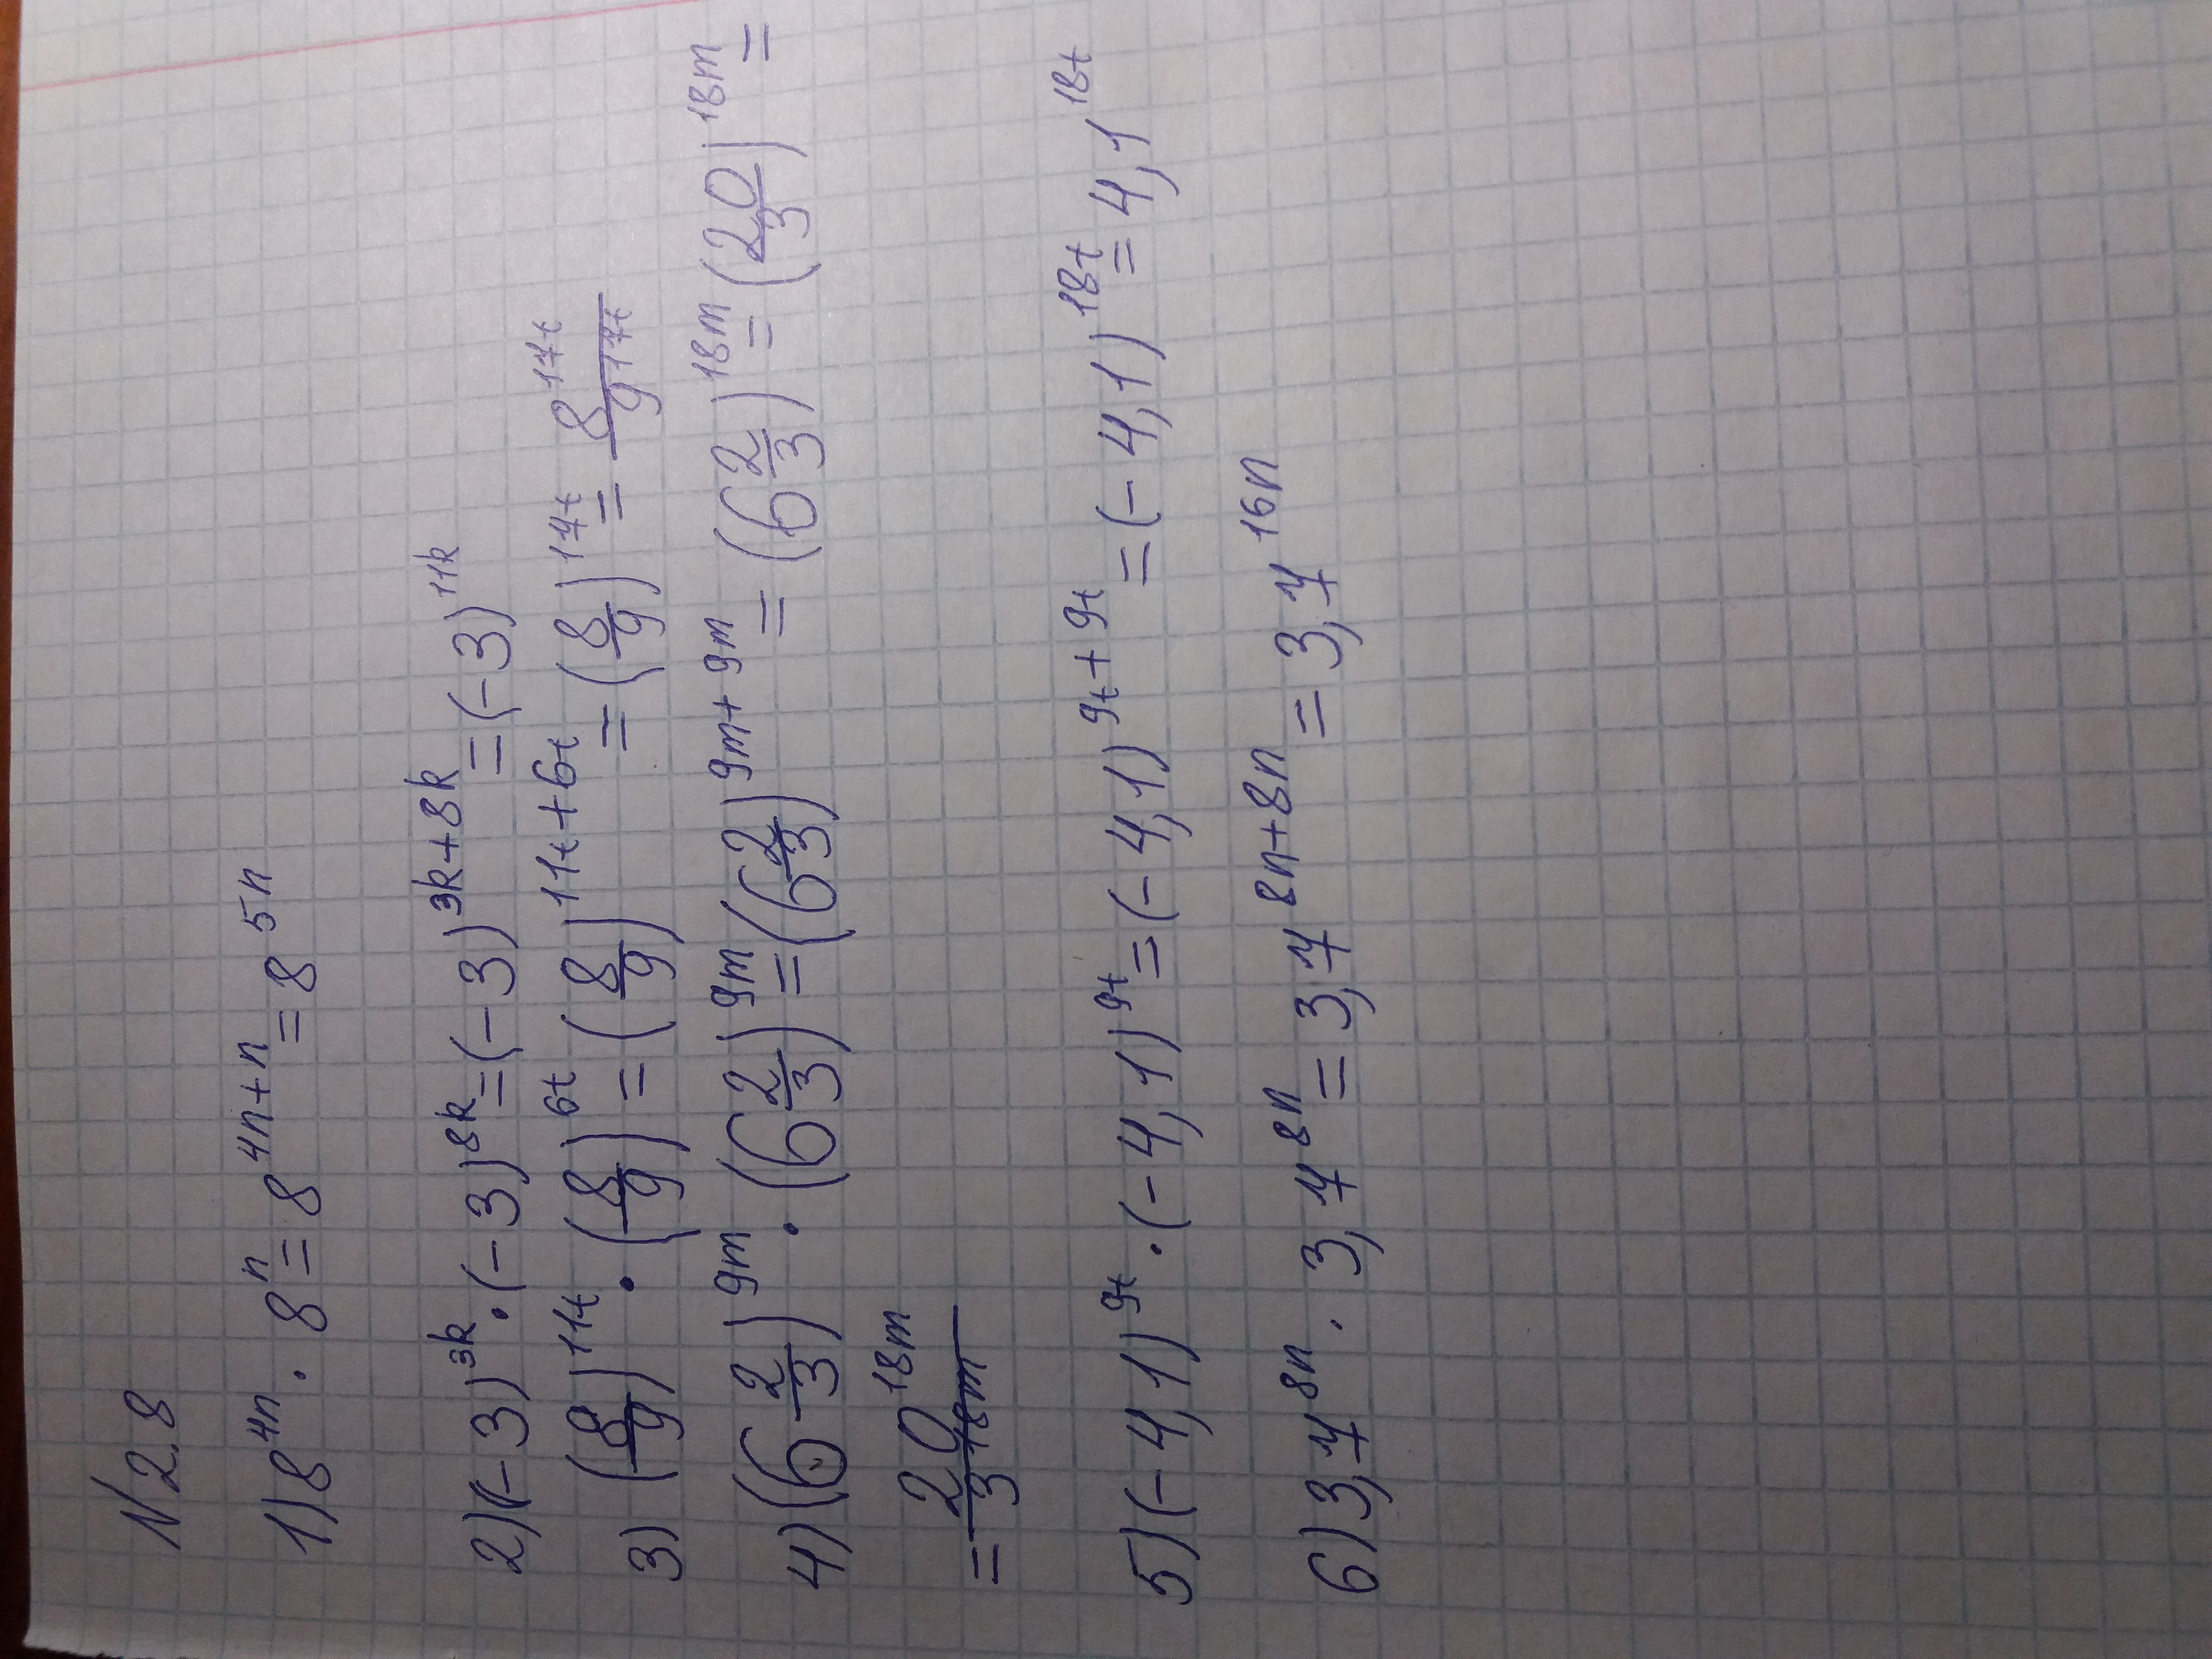 N 2.8
1) 8^{4n} · 8^{n} = 8^{4n+n} = 8^{5n}
2) (-3)^{3k} · (-3)^{8k} = (-3)^{3k+8k} = (-3)^{11k}
3) (8/9)^{11t} · (8/9)^{6t} = (8/9)^{11t+6t} = (8/9)^{17t} = 8^{17t}/9^{17t}
4) (6 2/3)^{9m} · (6 2/3)^{9m} = (6 2/3)^{9m+9m} = (6 2/3)^{18m} = (20/3)^{18m} =
= 20^{18m}/3^{18m}
5) (-4,1)^{9t} · (-4,1)^{9t} = (-4,1)^{9t+9t} = (-4,1)^{18t} = 4,1^{18t}
6) 3,7^{8n} · 3,7^{8n} = 3,7^{8n+8n} = 3,7^{16n}